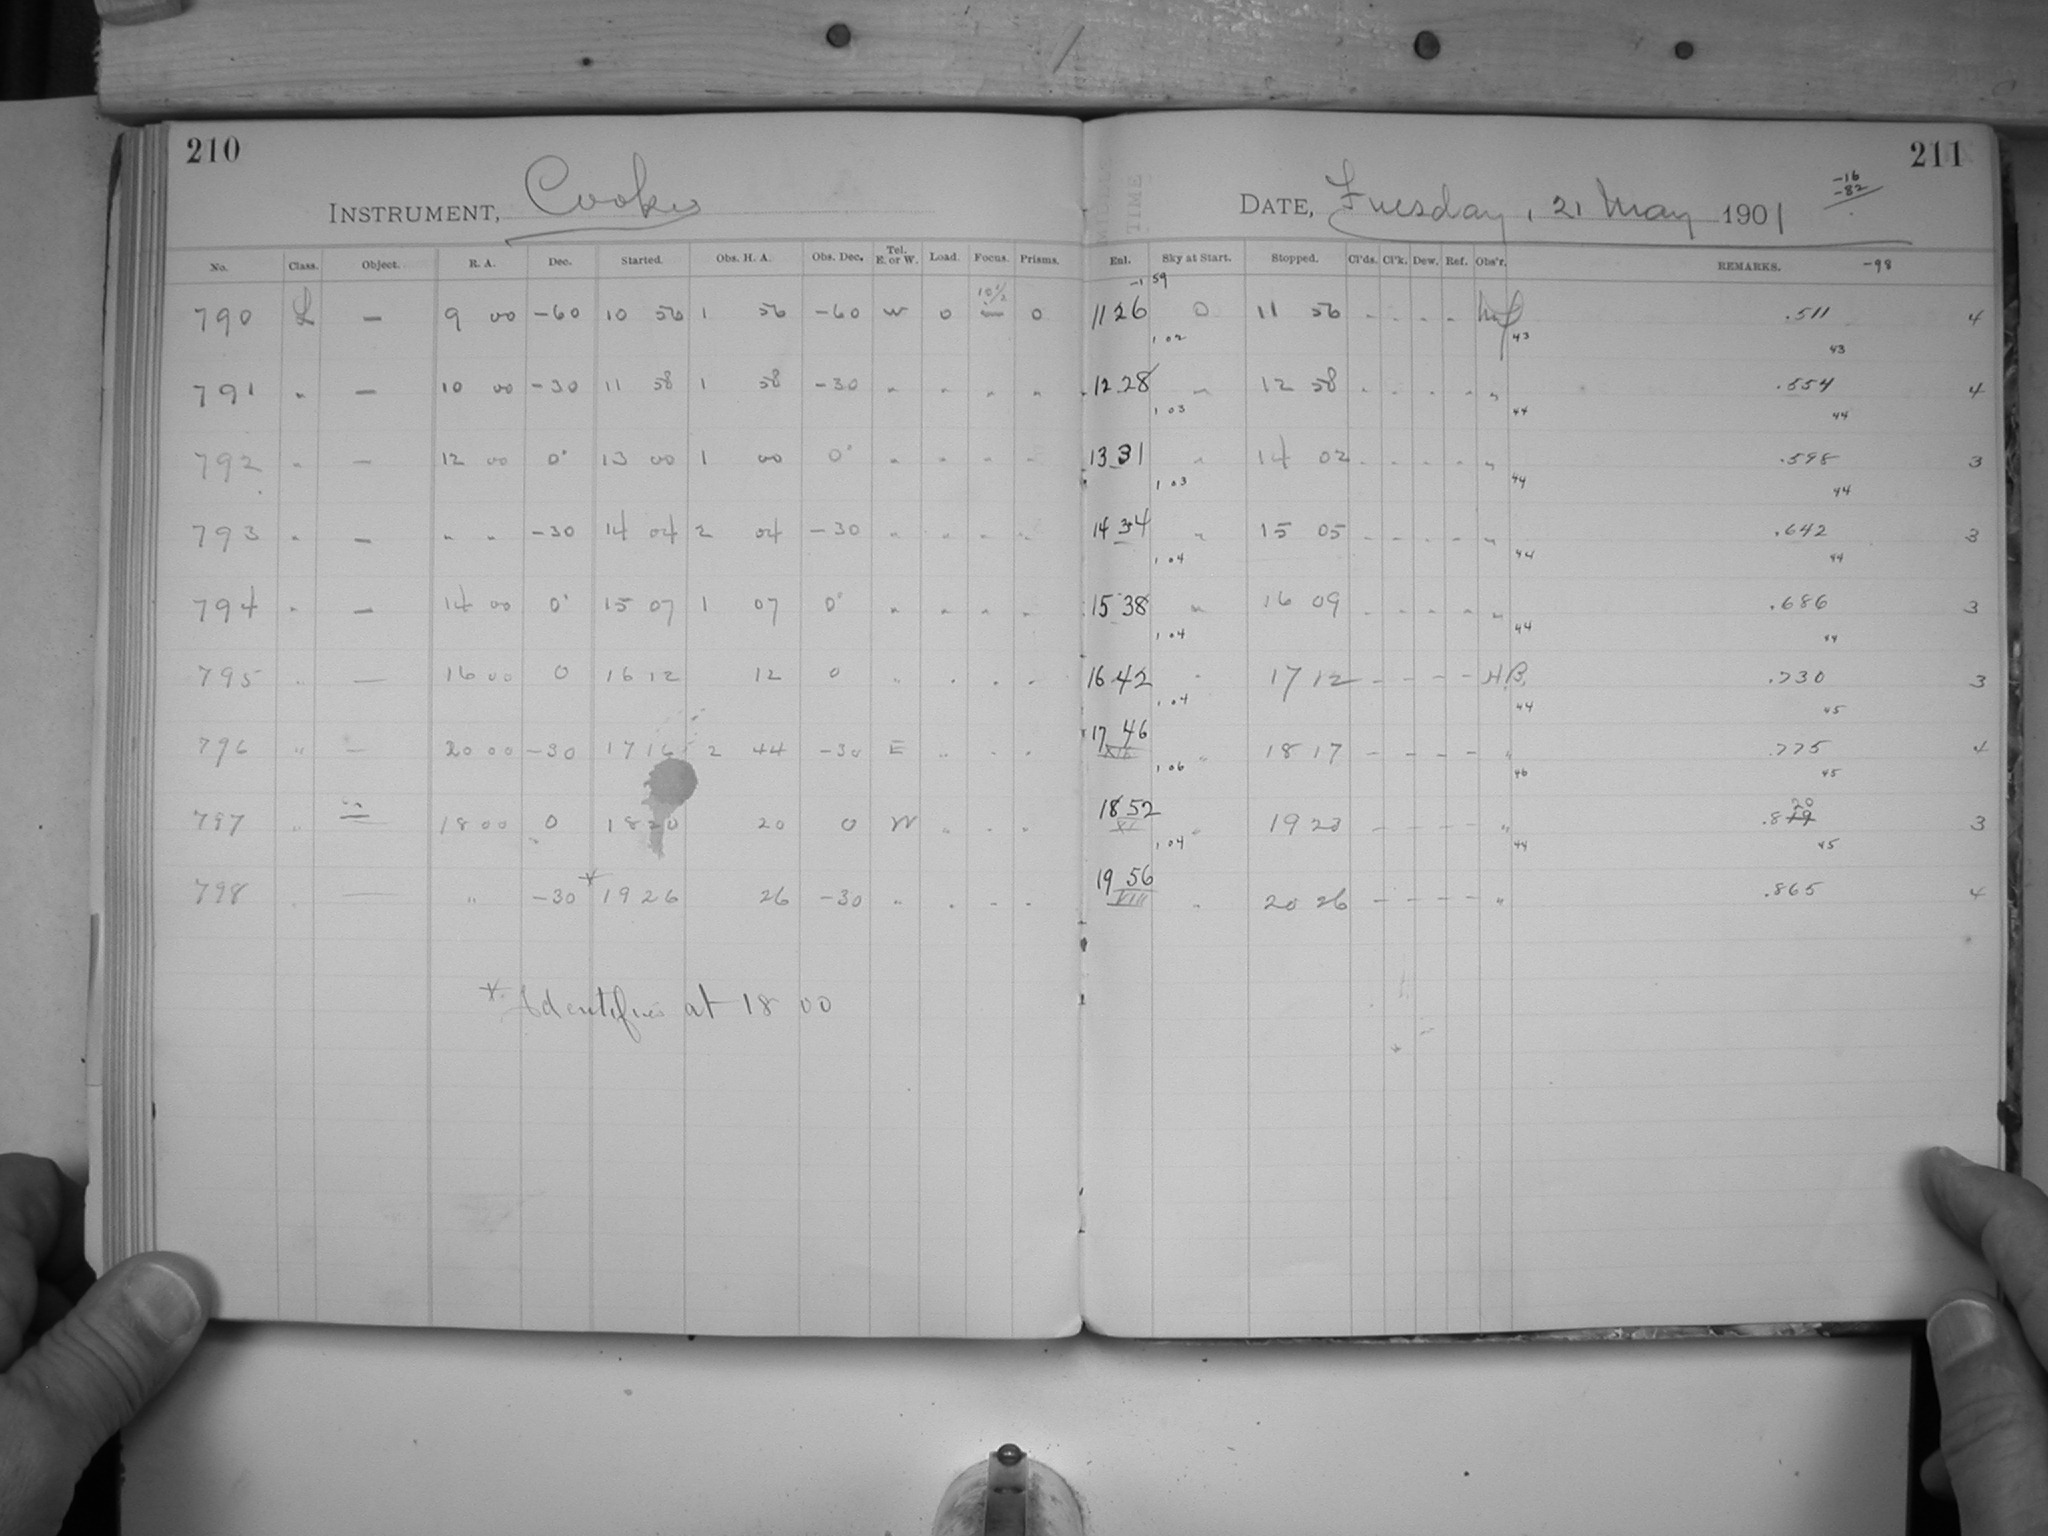 210
INSTRUMENT, Cooke
No. Class. Object. R. A. Dec. Started. Obs. H. A. Obs. Dec. Tel. E. or W. Load. Focus. Prisms.
790 L — 9 00 -60 10 56 1 56 -60 W 0 10 1/2 0
791 " — 10 00 -30 11 58 1 58 -30 " " " "
792 " — 12 00 0° 13 00 1 00 0° " " " "
793 " — " " -30 14 04 2 04 -30 " " " "
794 " — 14 00 0° 15 07 1 07 0° " " " "
795 " — 16 00 0 16 12 12 0 " " " "
796 " — 20 00 -30 17 16 2 44 -30 E " " "
797 " — 18 00 0 18 20 20 0 W " " "
798 " — " -30 * 19 26 26 -30 " " " "
* Identifies at 18 00
211
DATE, Tuesday, 21 May 1901
-16
-82
-98
Enl. Sky at Start. Stopped. Cl'ds. Cl'k. Dew. Ref. Obs'r. REMARKS.
-1 59
11 26 0 11 56 - - - - .511 4
1 02 43 43
12 28 " 12 58 - - - - " .554 4
1 03 44 44
13 31 " 14 02 - - - - " .598 3
1 03 44 44
14 34 " 15 05 - - - - " .642 3
1 04 44 44
15 38 " 16 09 - - - - " .686 3
1 04 44 44
16 42 " 17 12 - - - - H.B. .730 3
1 04 44 45
17 46 " 18 17 - - - - " .775 4
1 06 46 45
18 52 " 19 23 - - - - " .8 19 20 3
1 04 44 45
19 56 " 20 26 - - - - " .865 4